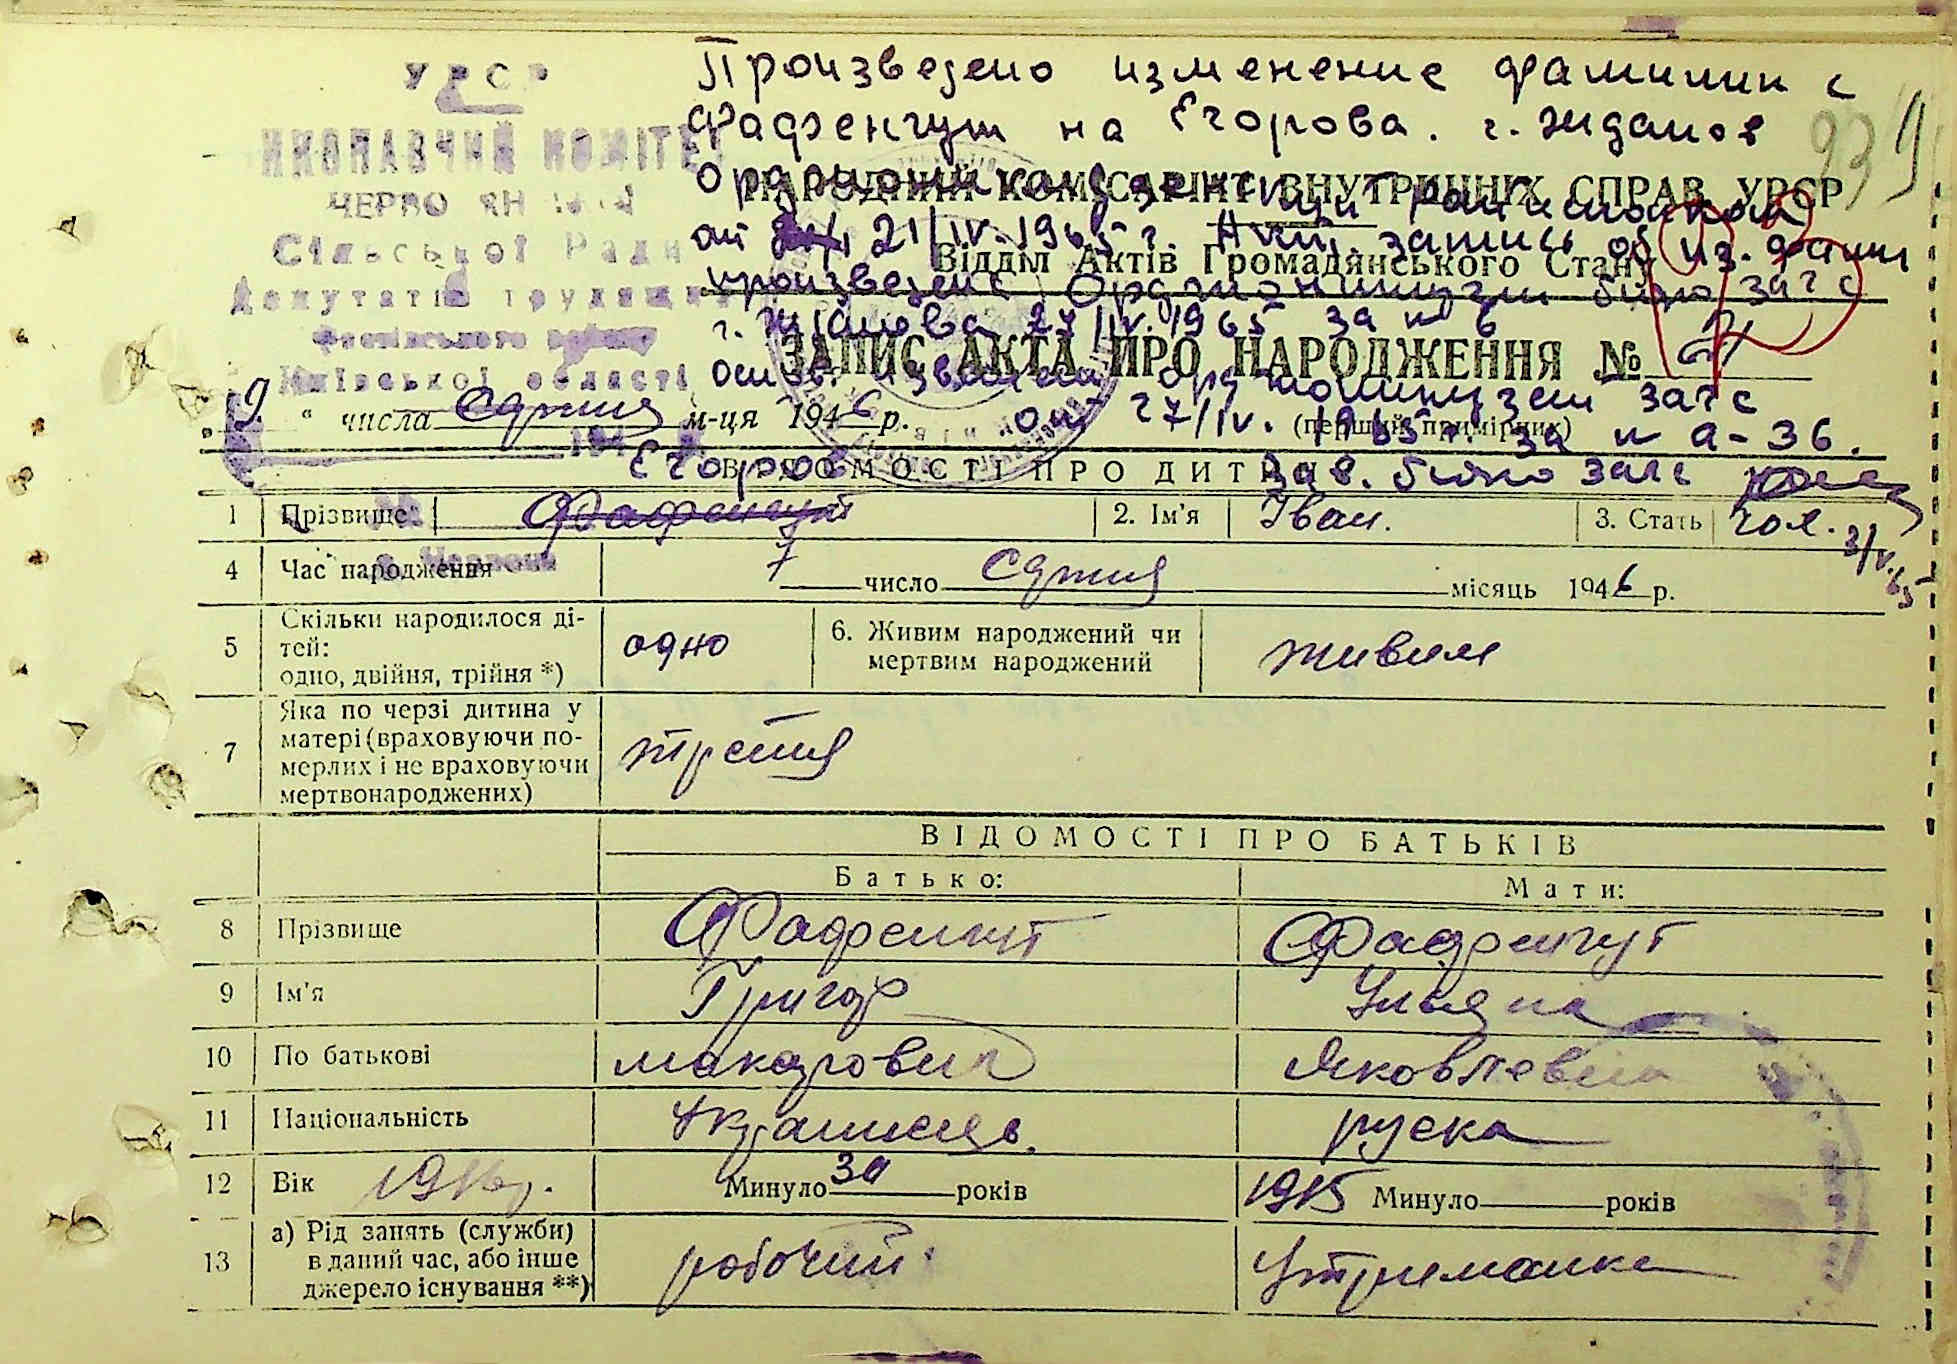 УРСР
ВИКОНАВЧИЙ КОМІТЕТ
Сільської Ради
Депутатів трудящих
Київської області
Произведено изменение фамилии с
Фафенгут на Егорова. г. Жданов
939
НАРОДНИЙ КОМІСАРІАТ ВНУТРІШНІХ СПРАВ УРСР
от 21/IV.1965 г. Акт. запись об из. фами
Відділ Актів Громадянського Стану
произведена Орджоникидзе бюро загс
г. Жданова 27/IV.1965 за № 6
ЗАПИС АКТА ПРО НАРОДЖЕННЯ №
Орджоникидзе загс
9 " числа Січня м-ця 1946 р.
от 27/IV. 1965 г. за № а-36.
(перший примірник)
Егоров
Зав. бюро загс
ВІДОМОСТІ ПРО ДИТИНУ
1 Прізвище Фафенгут 2. Ім'я Іван. 3. Стать чол.
3/V.65
4 Час народження 7 число Січня місяць 1946 р.
5 Скільки народилося дітей: одно, двійня, трійня *) одно 6. Живим народжений чи мертвим народжений живим
7 Яка по черзі дитина у матері (враховуючи померлих і не враховуючи мертвонароджених) третя
ВІДОМОСТІ ПРО БАТЬКІВ
Батько: Мати:
8 Прізвище Фафенгут Фафенгут
9 Ім'я Григор Ульяна
10 По батькові Макарович Яковлевна
11 Національність Українець. руска
12 Вік 1916 р. Минуло 30 років 1915 Минуло років
13 а) Рід занять (служби) в даний час, або інше джерело існування **) робочий. Утриманка